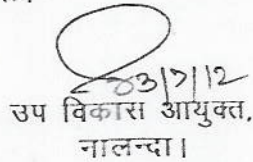 03/7/12
उप विकास आयुक्त,
नालन्दा।